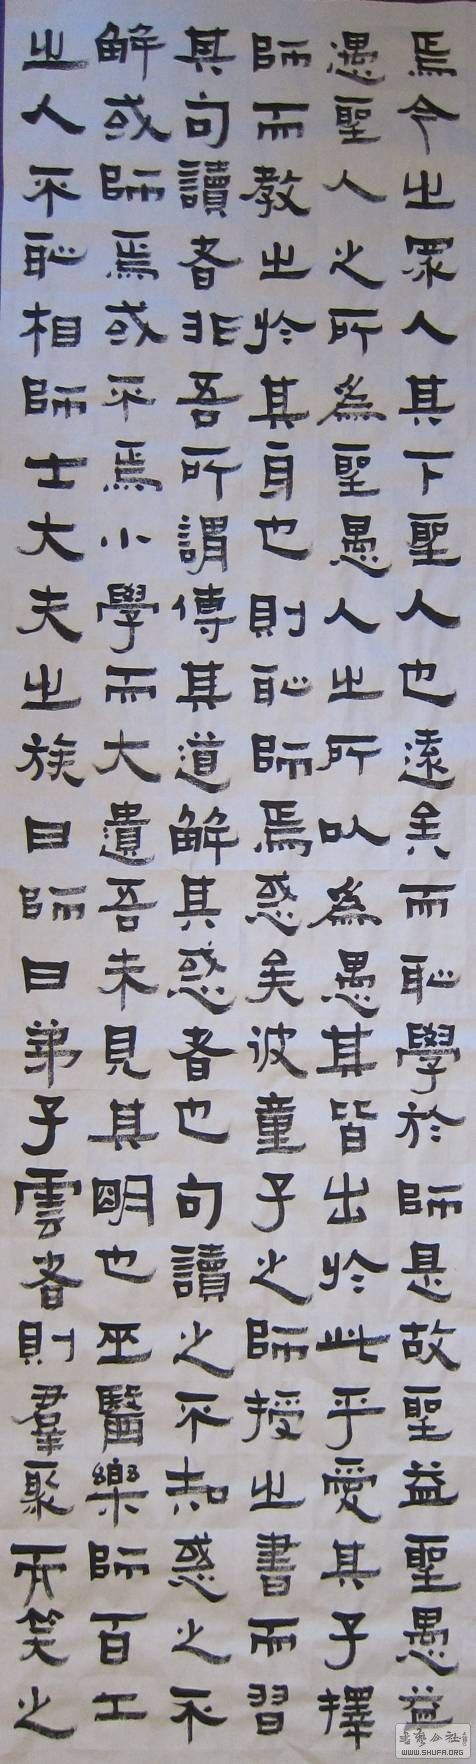 焉今之眾人其下聖人也遠矣而恥學於師是故聖益聖愚益
愚聖人之所為聖愚人之所以為愚其皆出於此乎愛其子擇
師而教之於其身也則恥師焉惑矣彼童子之師授之書而習
其句讀者非吾所謂傳其道解其惑者也句讀之不知惑之不
解或師焉或不焉小學而大遺吾未見其明也巫醫樂師百工
之人不恥相師士大夫之族曰師曰弟子雲者則羣聚而笑之
WWW.SHUFA.ORG